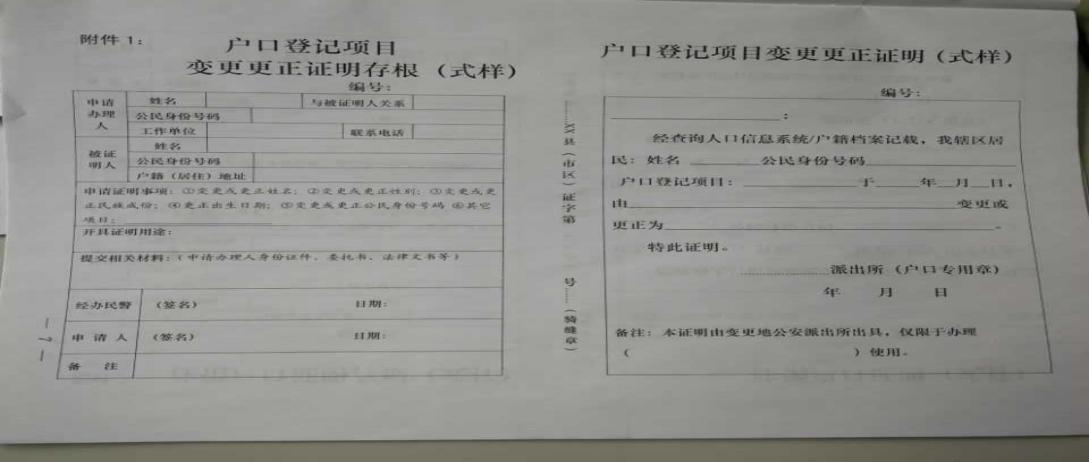 附件 1：
户口登记项目
变更更正证明存根（式样）
编号：
申请办理人
姓名
与被证明人关系
公民身份号码
工作单位
联系电话
被证明人
姓名
公民身份号码
户籍（居住）地址
申请证明事项：①变更或更正姓名；②变更或更正性别；③变更或更
正民族成份；④更正出生日期；⑤变更或更正公民身份号码 ⑥其它
项目：
开具证明用途：
提交相关材料：（申请办理人身份证件、委托书、法律文书等）
经办民警
（签名）
日期：
申 请 人
（签名）
日期：
备 注
— 7 —
……XX县（市区）证字第
号……（骑缝章）
户口登记项目变更更正证明（式样）
编号：
：
经查询人口信息系统/户籍档案记载，我辖区居
民：姓名 公民身份号码
户口登记项目： 于 年 月 日，
由 变更或
更正为 。
特此证明。
派出所（户口专用章）
年 月 日
备注：本证明由变更地公安派出所出具，仅限于办理
（ ）使用。